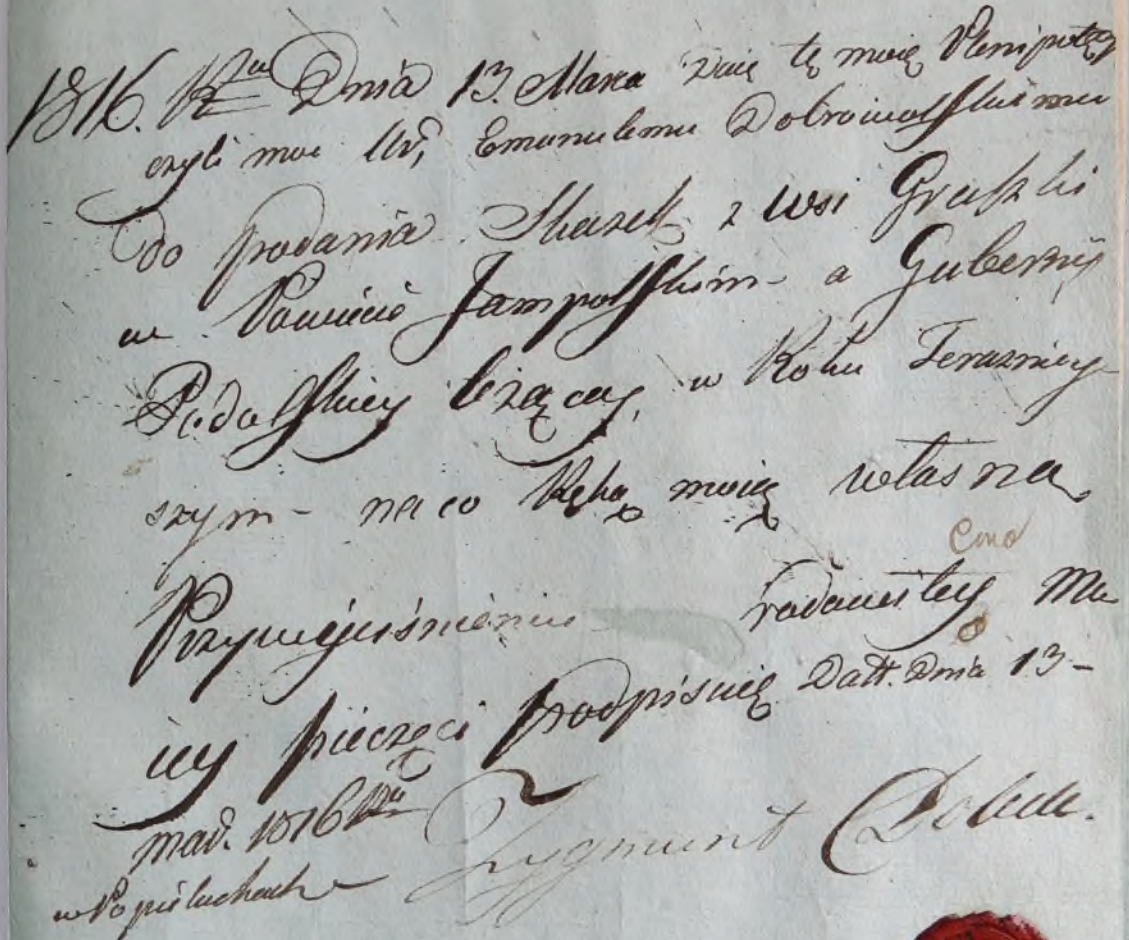 1816. Rku Dnia 13. Marca Daię tę moię Plenipotęcyą
czyli moc Ur, Emanulemu Dobrowolskiemu
do podania Skazek z wsi Gruszki
w Powiecie Jampolskim a Gubernij
Podolskiey leżącey, w Roku Terazniey-
szym - na co Ręką moią własną
Przyciśnieniu rodowitey Mo
iey pieczęci podpisuię Datt. Dnia 13 -
mar. 1816 Rku
w Popieluchach Zygmunt